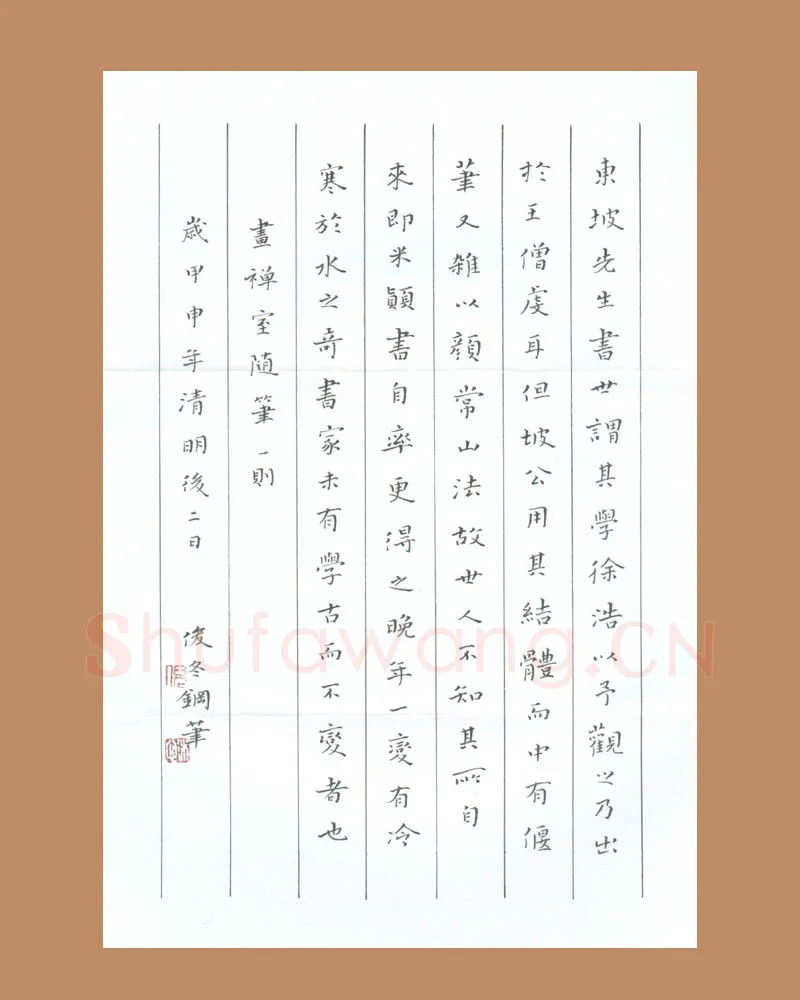 東坡先生書世謂其學徐浩以予觀之乃出
於王僧虔耳但坡公用其結體而中有偃
筆又雜以顔常山法故世人不知其所自
來即米顛書自率更得之晚年一變有冷
寒於水之奇書家未有學古而不變者也
畫禅室随筆一則
歳甲申年清明後二日
俊冬鋼筆
Shufawang.CN